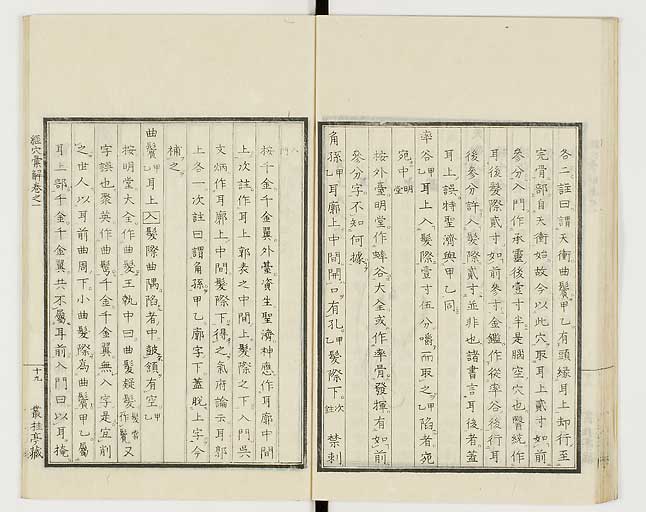 各二註曰謂天衝曲鬢甲乙有頭緣耳上却行至
完骨部自天衝始故今以此穴取耳上貳寸如前
參分入門作承靈後壹寸半是腦空穴也醫統作
耳後髮際貳寸如前參寸金鑑作從率谷後行耳
後參分許入髮際貳寸並非也諸書言耳後者蓋
耳上誤特聖濟與甲乙同
率谷甲乙耳上入髮際壹寸伍分嚼而取之甲乙陷者宛
宛中明堂
按外臺明堂作蜂谷大全或作率骨發揮有如前
參分字不知何據
角孫甲乙耳廓上中間開口有孔甲乙髮際下次註禁刺
按千金千金翼外臺資生聖濟神應作耳廓中間
上次註作耳上郭表之中間上髮際之下入門吳
文炳作耳廓上中間髮際下得之氣府論云耳郭
上各一次註曰謂角孫甲乙廓字下蓋脫上字今
補之
曲鬢甲乙耳上入髮際曲隅陷者中皷頷有空甲乙
按明堂大全作曲髮王執中曰曲髮疑髮當作鬢又
字誤也衆英作曲鬢千金千金翼無入字是宜前
之世人以耳前曲周下小曲髮際為曲鬢甲乙屬
耳上部千金千金翼共不屬耳前入門曰以耳掩
經穴彙解卷之一
十九
叢桂亭藏